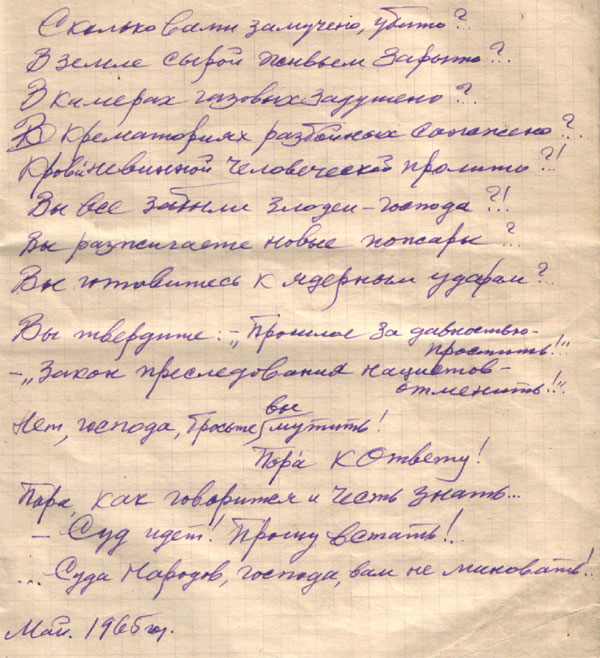 Сколько вами замучено, убито?..
В земле сырой живьем зарыто?..
В камерах газовых задушено?..
В крематориях разбойных сожжено?..
Крови невинной человеческой пролито?!
Вы все забыли злодеи-господа?!
Вы разжигаете новые пожары?..
Вы готовитесь к ядерным ударам?
Вы твердите: – „Прошлое за давностью-
простить!"
– „Закон преследования нацистов-
отменить!"..
вы
Нет, господа, бросьте мутить!
Пора к ответу!
Пора, как говорится и честь знать...
– Суд идет! Прошу встать!..
... Суда Народов, господа, вам не миновать!..
Май. 1965 год.